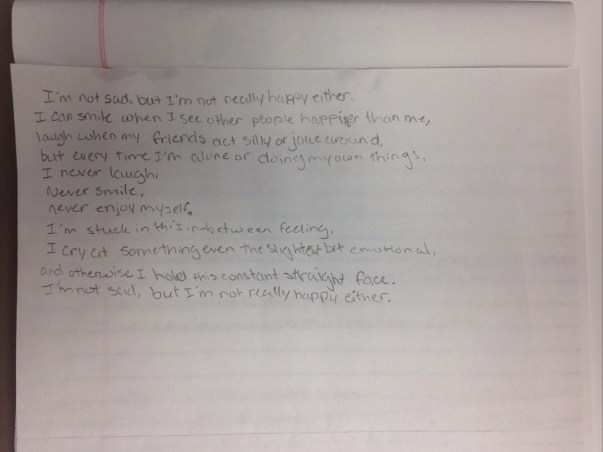 I'm not sad, but I'm not really happy either.
I can smile when I see other people happier than me,
laugh when my friends act silly or joke around,
but every time I'm alone or doing my own things,
I never laugh,
Never smile,
never enjoy myself.
I'm stuck in this in-between feeling,
I cry at something even the slightest bit emotional,
and otherwise I hold this constant straight face.
I'm not sad, but I'm not really happy either.